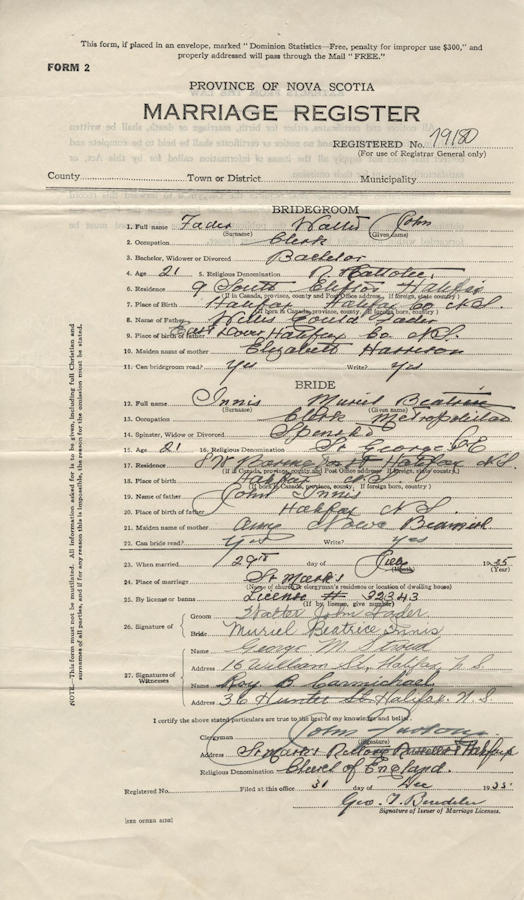 This form, if placed in an envelope, marked "Dominion Statistics—Free, penalty for improper use $300," and
properly addressed will pass through the Mail "FREE."
FORM 2
PROVINCE OF NOVA SCOTIA
MARRIAGE REGISTER
REGISTERED No. 19180
(For use of Registrar General only)
County Town or District Municipality
BRIDEGROOM
1. Full name Fader Walter John
(Surname) (Given name)
2. Occupation Clerk
3. Bachelor, Widower or Divorced Bachelor
4. Age 21 5. Religious Denomination R.
6. Residence 9 South Clifton Halifax
(If in Canada, province, county and Post Office address. If foreign, state country)
7. Place of Birth Halifax Halifax Co N.S.
(If born in Canada, province, county. If foreign, country)
8. Name of Father Willis Gould Fader
9. Place of birth of father East Dover Halifax Co. N.S.
10. Maiden name of mother Elizabeth Harrison
11. Can bridegroom read? Yes Write? Yes
BRIDE
12. Full name Innis Muriel Beatrice
(Surname) (Given name)
13. Occupation Clerk Metropolitan
14. Spinster, Widow or Divorced
15. Age 21 16. Religious Denomination St George C E
17. Residence St Halifax N.S.
(If in Canada, province, county and Post Office address. If foreign, state country)
18. Place of birth Halifax N.S.
(If born in Canada, province, county. If foreign, country)
19. Name of father John Innis
20. Place of birth of father Halifax N.S.
21. Maiden name of mother Amy Beamish
22. Can bride read? Yes Write? yes
23. When married 29th day of 1935
(Month) (Year)
24. Place of marriage St Marks
(Name of church or clergyman's residence or location of dwelling house)
25. By license or banns License # 32343
(If by license, give number)
26. Signature of Groom Walter John Fader
Bride Muriel Beatrice Innis
27. Signatures of Witnesses Name George M Stroud
Address 16 William St, Halifax, N S
Name Roy B Carmichael
Address 36 Hunter St. Halifax. N. S.
NOTE.—This form must not be mutilated. All information asked for is to be given, including full Christian and
surnames of all parties, and if for any reason this is impossible, the reason for the omission must be stated.
I certify the above stated particulars are true to the best of my knowledge and belief.
Clergyman John
(Signature)
Address St Marks Rectory Russell St Halifax
Religious Denomination Church of England.
Registered No. Filed at this office 31 day of Dec 1935
Geo. T.
Signature of Issuer of Marriage Licenses.